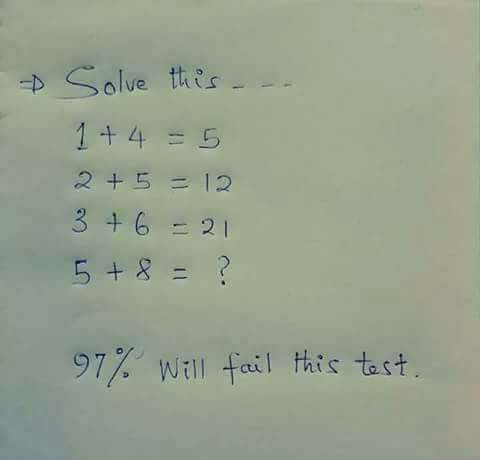 ⇒ Solve this - - - -
1 + 4 = 5
2 + 5 = 12
3 + 6 = 21
5 + 8 = ?
97% Will fail this test.